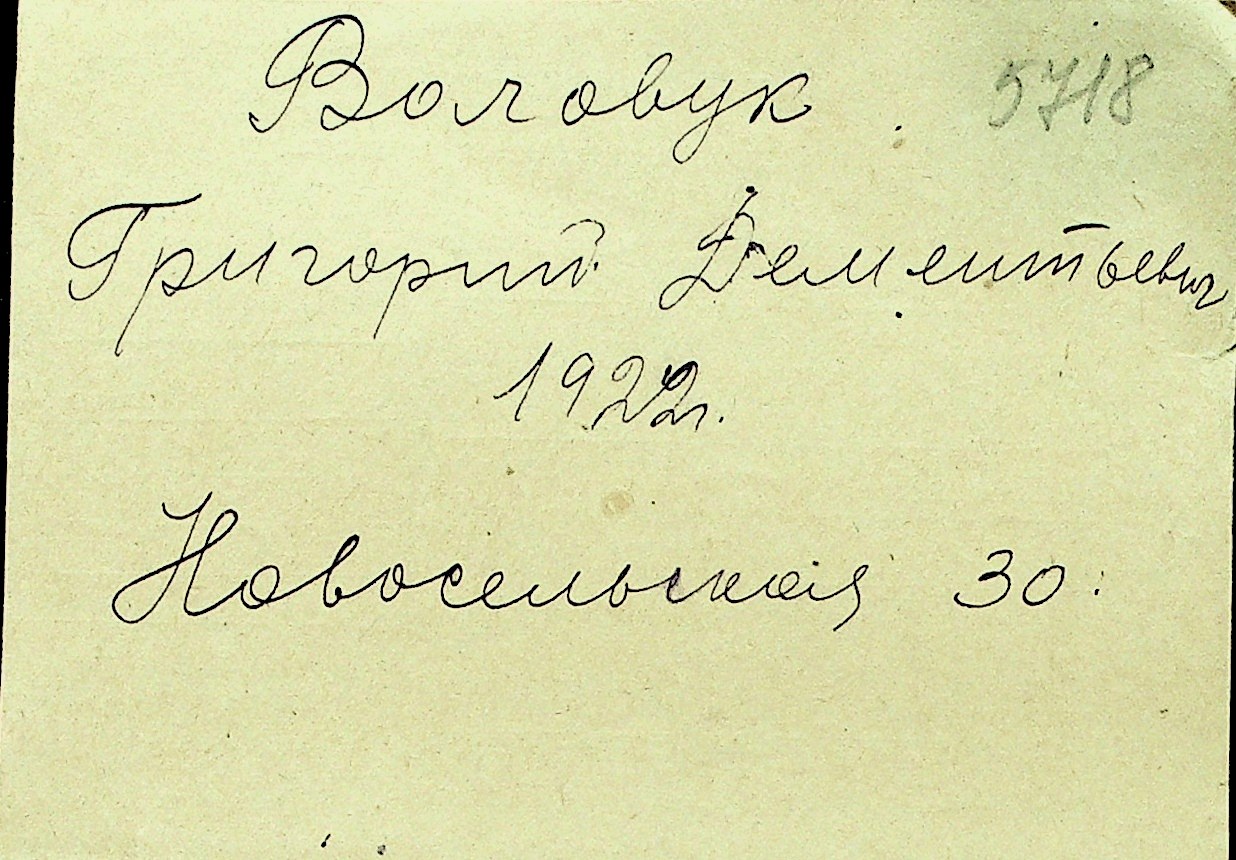 Воловук. 5718
Григорий Дементьевич
1922г.
Новосельская 30.